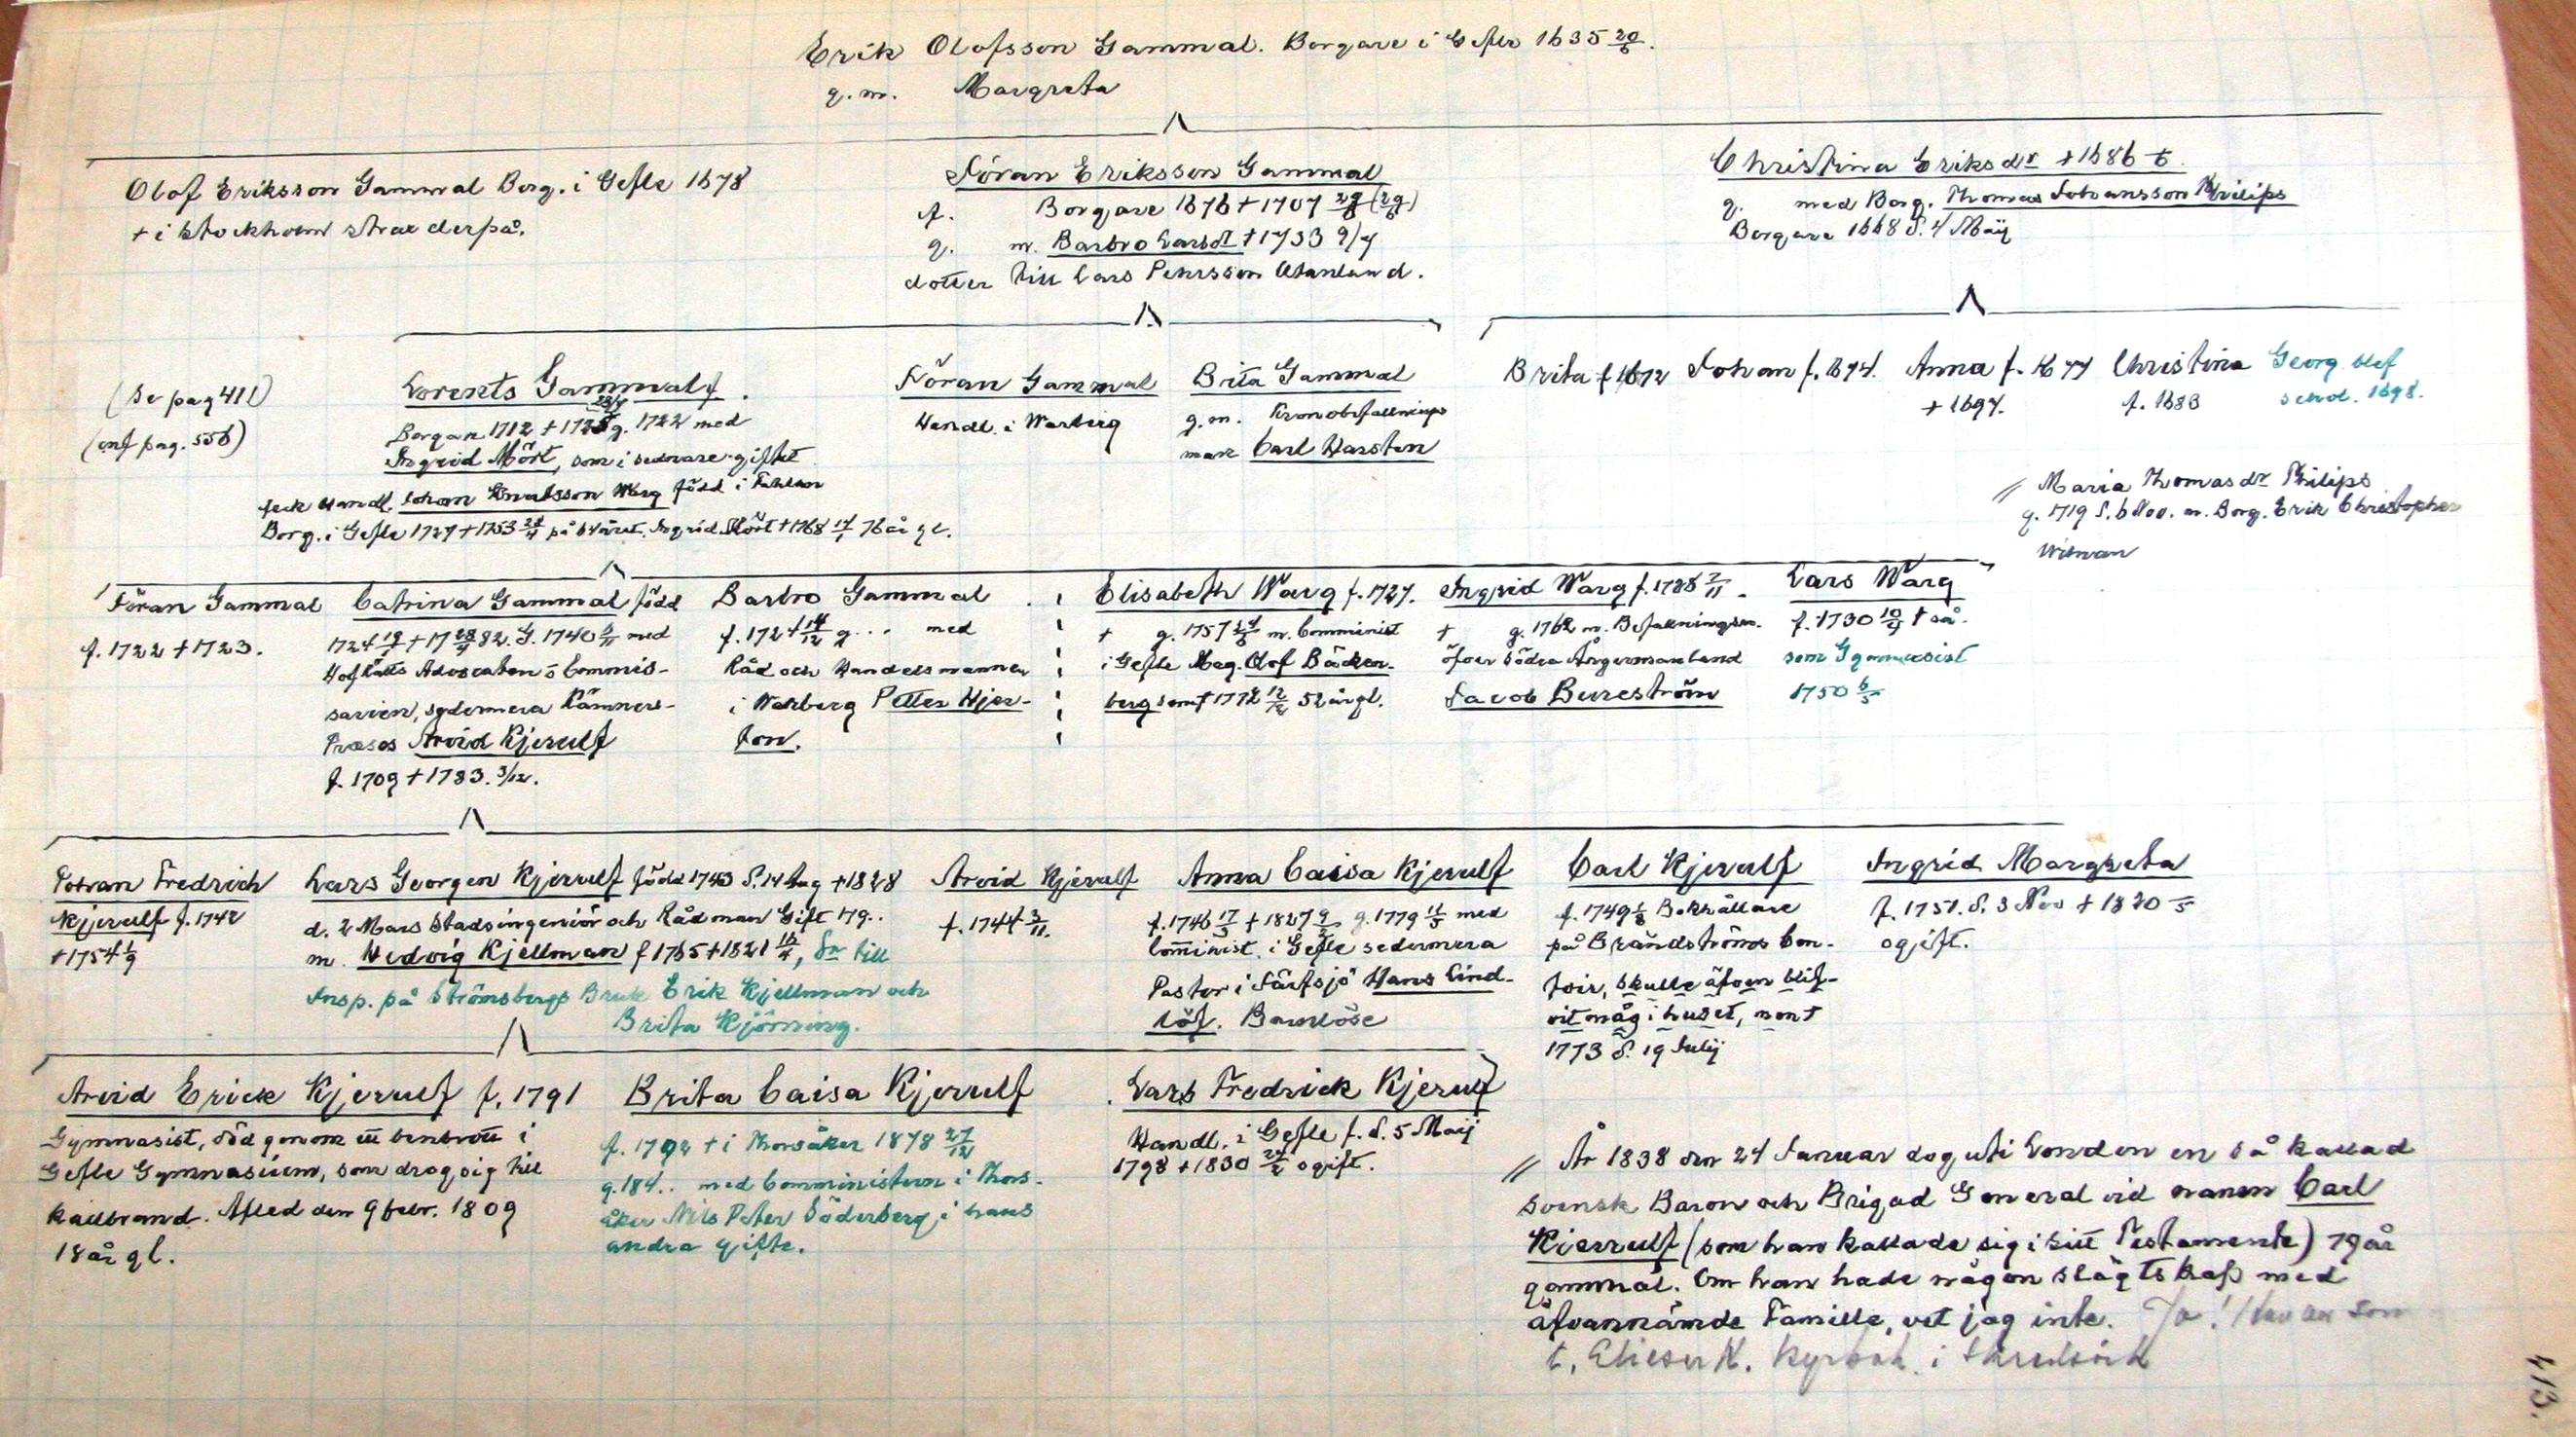 Erik Olofsson Gammal. Borgare i Gefle 1635 20/6.
g.m. Margreta
Olof Eriksson Gammal Borg. i Gefle 1678
+ i Stockholm strax derpå.
Jöran Eriksson Gammal
f. Borgare 1676 + 1707
g. m. Barbro Larsdr + 1733 9/7
dotter till Lars Pehrsson
Christina Eriksdr + 1686
g. med Borg. Thomas Johansson Philips
Borgare 1668 d. 4 Maij
(Se pag 411)
(enf pag. 556)
Lorents Gammal f.
Borgare 1712 + g. 1722 med
Ingrid Mört, som i sednare giftet
feck Handl. Johan Knutsson Warg född i Fahlun
Borg. i Gefle 1727 + 1753 på Ingrid Mört + 1768 17/1 76 år gl.
Jöran Gammal
Handl. i Warberg
Brita Gammal
g.m. Kronobefallnings
man Carl Harsten
Brita f. 1672 Johan f. 1674. Anna f. 1677 Christina Georg
+ 1697. f. 1683 1698.
// Maria Thomasdr Philips
g. 1719 d. 6 Nov. m. Borg. Erik Christopher
Witman
Jöran Gammal
f. 1722 + 1723.
Catrina Gammal född
1724 19/7 + 17 28/4 82. G. 1740 med
Hofrätts Advocaten o Commis-
sarien, sedermera Kämners-
Præses Arvid Kjerulf
f. 1709 + 1783. 3/12.
Barbro Gammal
f. 1724 14/12 g... med
Råd och Handelsmannen
i Warberg Petter Hjer-
ton.
Elisabeth Warg f. 1727.
+ g. 1757 m. Comminist
i Gefle Mag. Olof Bäcker-
berg som + 1772 12/12 52 år gl.
Ingrid Warg f. 1728 7/11.
+ g. 1762 m. Befallningsm.
öfver Södra Ångermanland
Jacob Bureström
Lars Warg
f. 1730 10/9 + så-
som Gymnasist
1750 6/5
Johan Fredrich
Kjerulf f. 1742
+ 1754 1/9
Lars Georgen Kjerulf född 1743 d. 14 Aug + 1828
d. 2 Mars Stadsingeniör och Rådman Gift 179..
m. Hedvig Kjellman f 1765 + 1821 16/4, dr till
Insp. på Strömsbergs Bruk Erik Kjellman och
Brita Kjörning.
Arvid Kjerulf
f. 1744 3/11.
Anna Caisa Kjerulf
f. 1746 17/5 + 1827 9/2 g. 1779 med
Comminist. i Gefle sedermera
Pastor i Järfsjö Hans Lind-
löf. Barnlöse
Carl Kjerulf
f. 1749 1/8 Bokhållare
på Brändströms Con-
toir, skulle äfven blif-
vit måg i huset, men +
1773 d. 19 Julij
Ingrid Margreta
f. 1751. d. 3 Nov + 1820
ogift.
Arvid Erick Kjerulf f. 1791
Gymnasist, död genom ett benbrott i
Gefle Gymnasium, som drog sig till
kallbrand. Afled den 9 febr. 1809
18 år gl.
Brita Caisa Kjerulf
f. 1792 + i Thorsåker 1878 27/12
g. 184.. med Comministern i Thors-
åker Nils Peter Söderberg, i hans
andra gifte.
Lars Fredrick Kjerulf
Handl. i Gefle f. d. 5 Maij
1798 + 1830 24/2 ogift.
// År 1838 den 24 Januar dog uti London en så kallad
Svensk Baron och Brigad General vid namn Carl
Kierrulf (som han kallade sig i sitt Testamente) 79 år
gammal. Om han hade någon slägtskap med
äfvannämde Familie, vet jag inte. Ja! Han var son
t. Elieser K. kyrkoh. i
413.